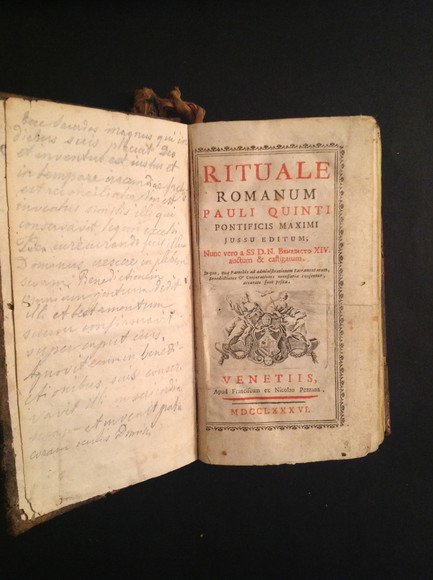 Ecce Sacerdos magnus qui in
diebus suis placuit Deo
et inventus est justus et
in tempore
est reconciliatio Non est
inventus similis illi qui
conservavit legem excelsi
Ideo jurejurando fecit
crescere in plebem
Benedictionem
omnium gentium dedit
illi et testamentum
suum confirmavit
super caput ejus.
Agnovit eum in benedi
ctionibus suis conser
vavit illi
et invenit
coram oculis Domini
RITUALE
ROMANUM
PAULI QUINTI
PONTIFICIS MAXIMI
JUSSU EDITUM,
Nunc vero a SS D. N. BENEDICTO XIV.
auctum & castigatum.
In quo, quæ Parochis ad administrationem Sacramentorum,
Benedictiones & Conjurationes necessaria censentur,
accurate sunt posita.
VENETIIS,
Apud Franciscum ex Nicolao Pezzana.
MDCCLXXXVI.